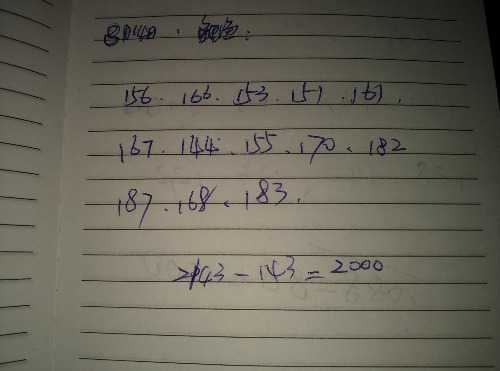 156. 166. 153. 151. 161.
167. 144. 155. 170. 182
187. 168. 183.
2143 - 143 = 2000